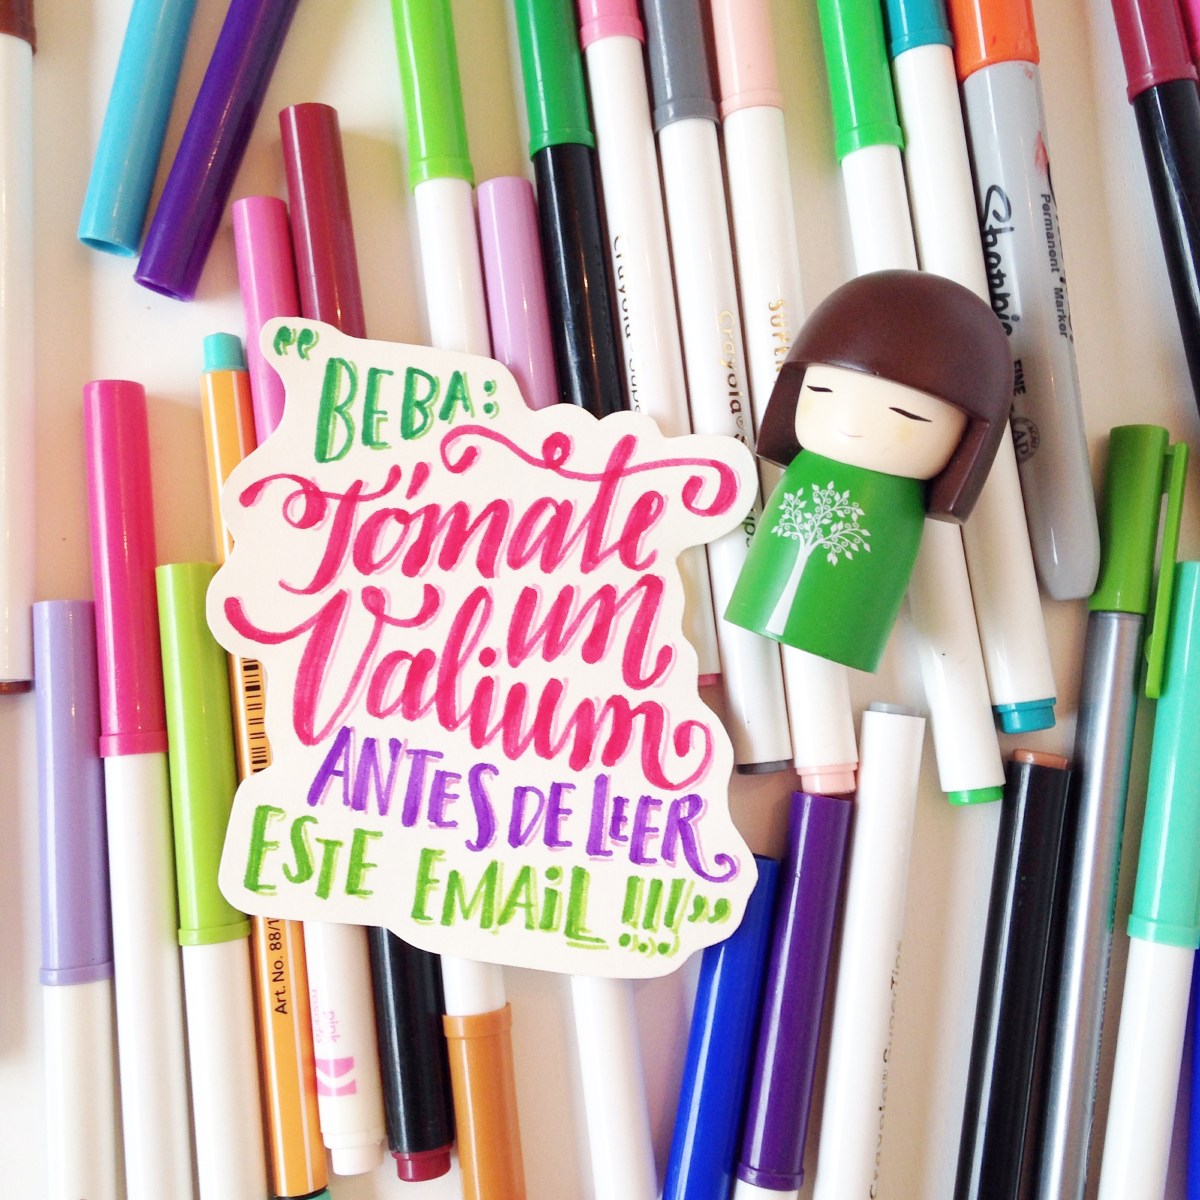 “BEBA:
Tómate
un
Valium
ANTES DE LEER
ESTE EMAIL!!!”
Sharpie
Permanent Marker
FINE
AP
Crayola
Crayola
SUPER
Art. No. 88/
pink
Crayola® SuperTips